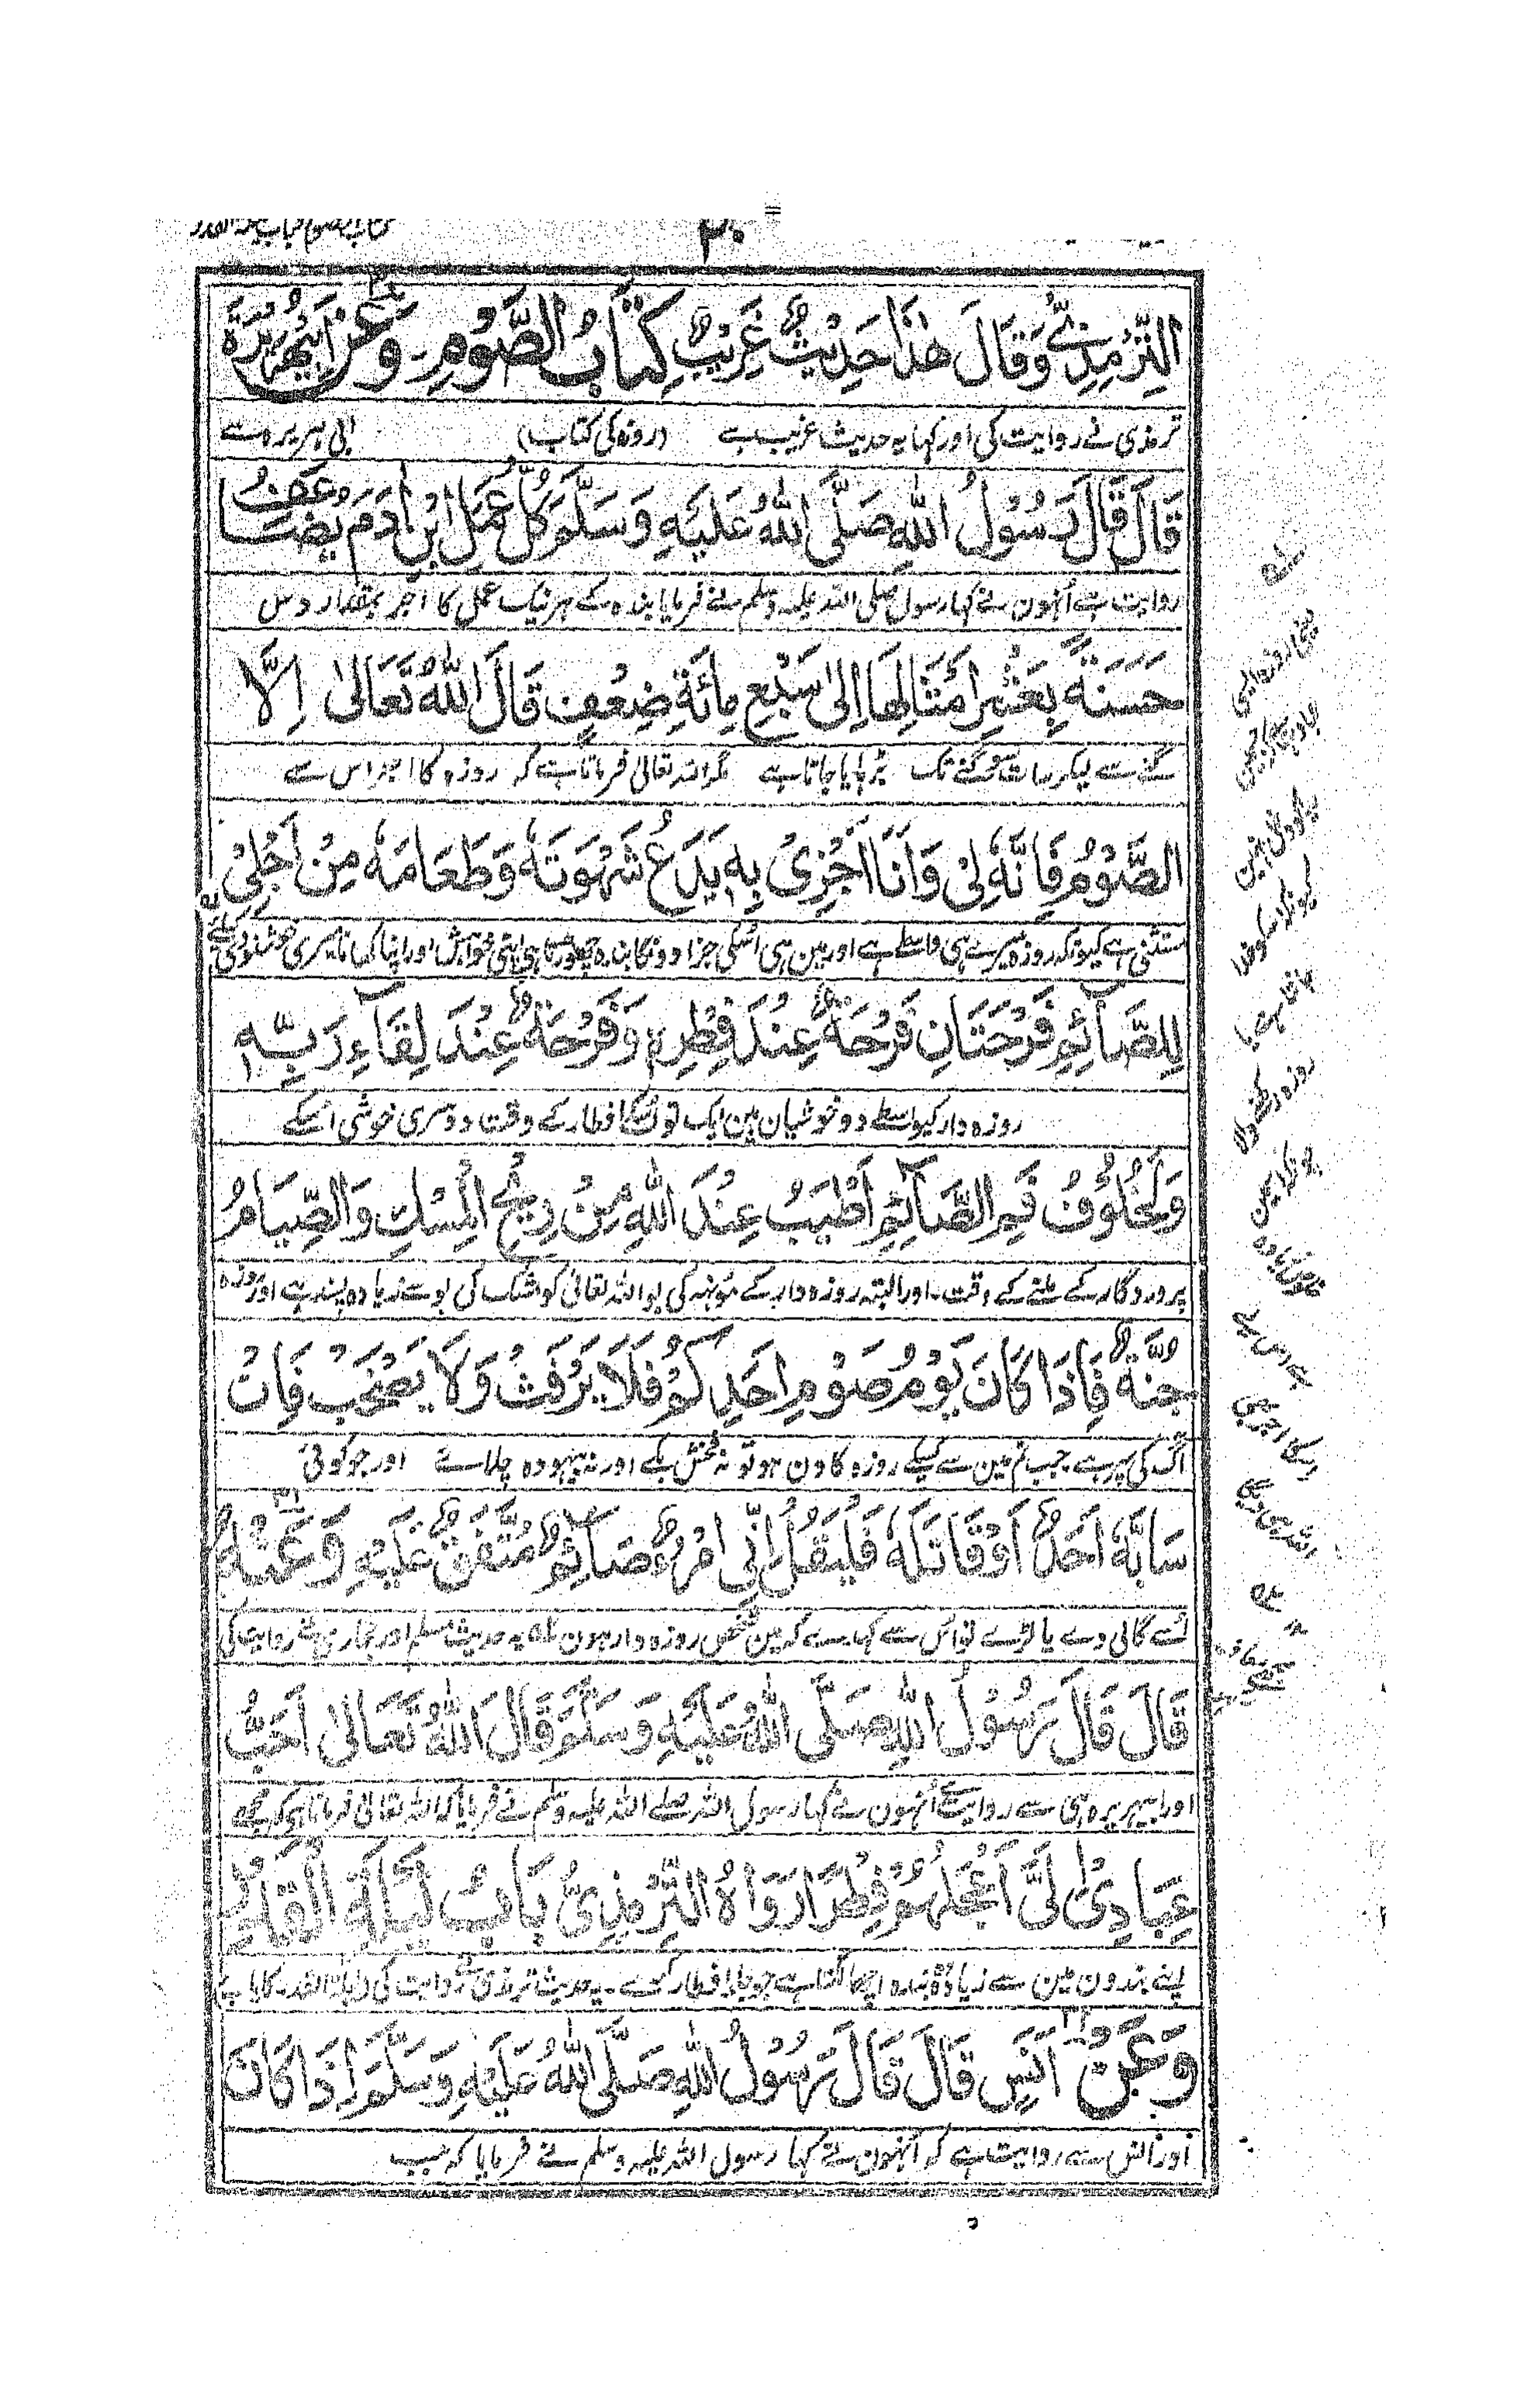 ۳۰
التِّرْمِذِيُّ وَقَالَ هٰذَا حَدِيْثٌ غَرِيْبٌ كِتَابُ الصَّوْمِ وَعَنْ اَبِيْ هُرَيْرَةَ
ترمذی نے روایت کی اور کہا یہ حدیث غریب ہے (روزہ کی کتاب) ابی ہریرہ سے
قَالَ قَالَ رَسُوْلُ اللّٰهِ صَلَّى اللّٰهُ عَلَيْهِ وَسَلَّمَ كُلُّ عَمَلِ ابْنِ اٰدَمَ يُضَاعَفُ
روایت ہے اُنہون نے کہا رسول صلی اللہ علیہ وسلم نے فرمایا بندہ کے ہر نیک عمل کا اجر بمقدار دس
حَسَنَةٌ بِعَشْرِ اَمْثَالِهَا اِلٰى سَبْعِ مِائَةِ ضِعْفٍ قَالَ اللّٰهُ تَعَالٰى اِلَّا
گنے سے لیکر سات سو گنے تک بڑہایا جاتا ہے مگر اللہ تعالیٰ فرماتا ہے کہ روزہ کا اجر اس سے
الصَّوْمُ فَاِنَّهٗ لِيْ وَاَنَا اَجْزِىْ بِهٖ يَدَعُ شَهْوَتَهٗ وَطَعَامَهٗ مِنْ اَجْلِيْ
مستثنی ہے کیونکہ روزہ میرے ہی واسطے ہے اور مین ہی اُسکی جزا دونگا بندہ چھوڑتا ہی اپنی خواہش اور اپنا کھانا میری خوشنودی کیلئے
لِلصَّآئِمِ فَرْحَتَانِ فَرْحَةٌ عِنْدَ فِطْرِهٖ وَفَرْحَةٌ عِنْدَ لِقَآءِ رَبِّهٖ
روزہ دار کیواسطے دو خوشیان ہین ایک تو اُسکا افطار کے وقت دوسری خوشی اُسکے
وَلَخُلُوْفُ فَمِ الصَّآئِمِ اَطْيَبُ عِنْدَ اللّٰهِ مِنْ رِيْحِ الْمِسْكِ وَالصِّيَامُ
پروردگار کے ملنے کے وقت۔ اور البتہ روزہ دار کے مونہہ کی بو اللہ تعالیٰ کو مشک کی بو سے زیادہ پسند ہے اور روزہ
جُنَّةٌ فَاِذَا كَانَ يَوْمُ صَوْمِ اَحَدِكُمْ فَلَا يَرْفَثْ وَلَا يَصْخَبْ فَاِنْ
آگ کی سپر ہے جب تم مین سے کسیکے روزہ کا دن ہو تو نہ فحش بکے اور نہ بیہودہ چلائے اور جو کوئی
سَابَّهٗ اَحَدٌ اَوْ قَاتَلَهٗ فَلْيَقُلْ اِنِّي امْرُؤٌ صَآئِمٌ مُتَّفَقٌ عَلَيْهِ وَعَنْهُ
اُسے گالی دے یا لڑے تو اُس سے کہدے کہ مین شخص روزہ دار ہون یہ حدیث مسلم اور بخاری نے روایت کی
قَالَ قَالَ رَسُوْلُ اللّٰهِ صَلَّى اللّٰهُ عَلَيْهِ وَسَلَّمَ قَالَ اللّٰهُ تَعَالٰى اَحَبُّ
اور ابیہریرہ ہی سے روایت ہے اُنہون نے کہا رسول اللہ صلے اللہ علیہ وسلم نے فرمایا کہ اللہ تعالیٰ فرماتا ہی کہ مجھے
عِبَادِىْ اِلَيَّ اَعْجَلُهُمْ فِطْرًا رَوَاهُ التِّرْمِذِىُّ بَابُ لَيْلَةِ الْقَدْرِ
اپنے بندون مین سے زیادہ وہ بندہ اچھا لگتا ہے جو جلد افطار کرے۔ یہ حدیث ترمذی نے روایت کی لیلۃ القدر کا باب
وَعَنْ اَنَسٍ قَالَ قَالَ رَسُوْلُ اللّٰهِ صَلَّى اللّٰهُ عَلَيْهِ وَسَلَّمَ اِذَا كَانَ
اور انس سے روایت ہے کہ اُنہون نے کہا رسول اللہ علیہ وسلم نے فرمایا کہ جب
یعنی روزہ ایسی
کیونکہ اسکو خدا
روزہ رکھنے والا
چونکہ اسمین
ہے اس لئے
اسکا اجر بھی